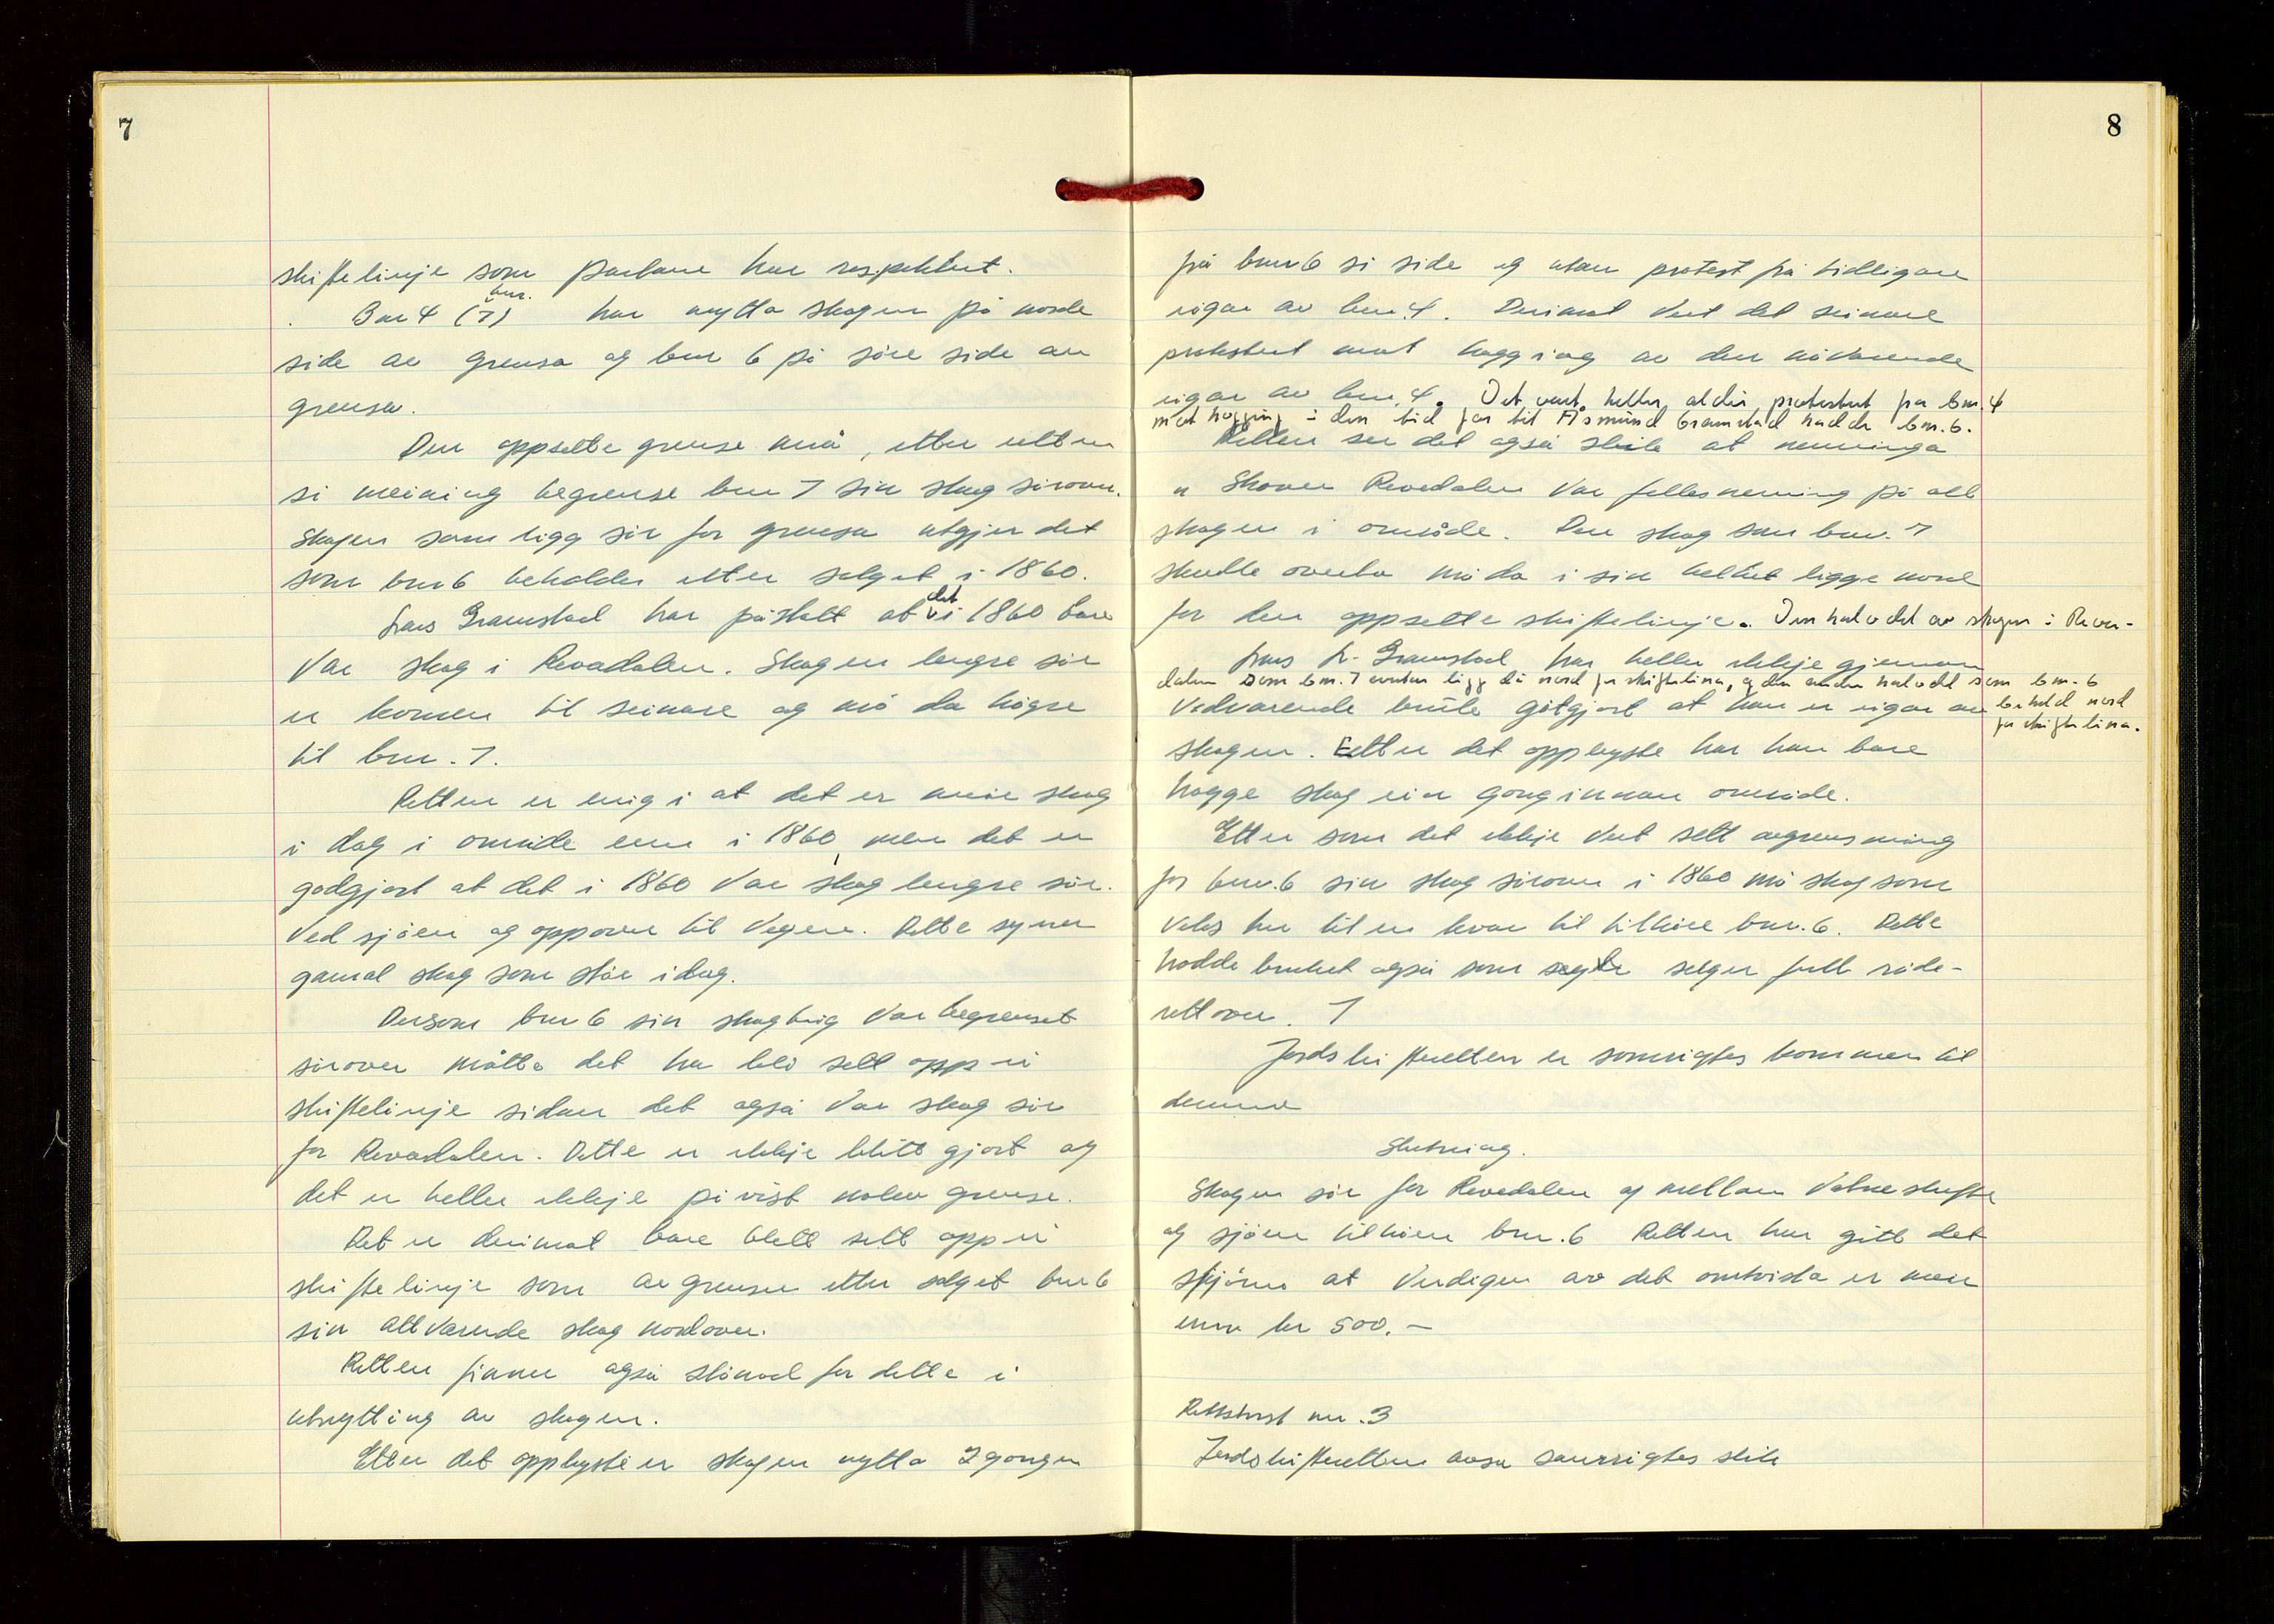 7
skiftelinje som partane har respektert.
Bnr 4 (7) bnr. har nytta skogen på nordre
side av grensa og bnr 6 på søre side av
grensa.
Den oppsette grense må, etter retten
si meining begrense bnr 7 sin skog sørover.
Skogen som ligg sør for grensa utgjer det
som bnr 6 beholder etter salget i 1860.
Lars Gramstad har påstått at det i 1860 bare
var skog i Revadalen. Skogen lengre sør
er komen til seinare og må da høyre
til bnr. 7.
Retten er enig i at det er meir skog
i dag i område enn i 1860, men det er
godgjort at det i 1860 var skog lengre sør.
Ved sjøen og oppover til vegen. Dette syner
gamal skog som står i dag.
Dersom bnr 6 sin skogteig var begrenset
sørover måtte det ha blid sett opp ei
skiftelinje sidan det også var skog sør
for Revadalen. Dette er ikkje blitt gjort og
det er heller ikkje påvist noken grense.
Det er derimot bare blitt sett opp ei
skiftelinje som avgrenser etter salget bnr 6
sin attvarende skog nordover.
Retten finner også stønad for dette i
utnytting av skogen.
Etter det opplyste er skogen nytta 2 gonger
8
frå bnr 6 si side og utan protest frå tidligare
eigar av bnr. 4. Derimot vert det seinare
protestert mot hogging av den nåvarende
eigar av bnr. 4. Det vart heller aldri protestert fra bnr. 4
mot hogging i den tid far til Åsmund Gramstad hadde bnr. 6.
Retten ser det også slik at nemninga
" Skoven Revedalen var fellesnemning på all
skogen i område. Den skog som bnr. 7
skulle overta må da i sin helhet ligge nord
for den oppsette skiftelinje. Den halvdel av skogen i Reve-
dalen som bnr. 7 overtar ligg då nord for skiftelina, og den andre halvdel som bnr. 6
beheld nord
for skiftelina.
Lars L. Gramstad har heller ikkje gjennom
vedvarende bruk gotgjort at han er eigar av
skogen. Etter det opplyste har han bare
hogge skog ein gong innan område.
Etter som det ikkje vert sett avgrensning
for bnr. 6 sin skog sørover i 1860 må skog som
veks her til en kvar til tilhøre bnr. 6. Dette
hadde bruket også som selger full råde-
rett over. 7
Jordskifteretten er samrøystes kommen til
denne
Slutning.
Skogen sør for Revedalen og mellom Vatneskifte
og sjøen tilhører bnr. 6 Retten har gitt det
skjønn at verdigen av det omtvista er meir
enn kr 500.-
Rettsbost nr. 3
Jordskifteretten avsa samrøystes slik